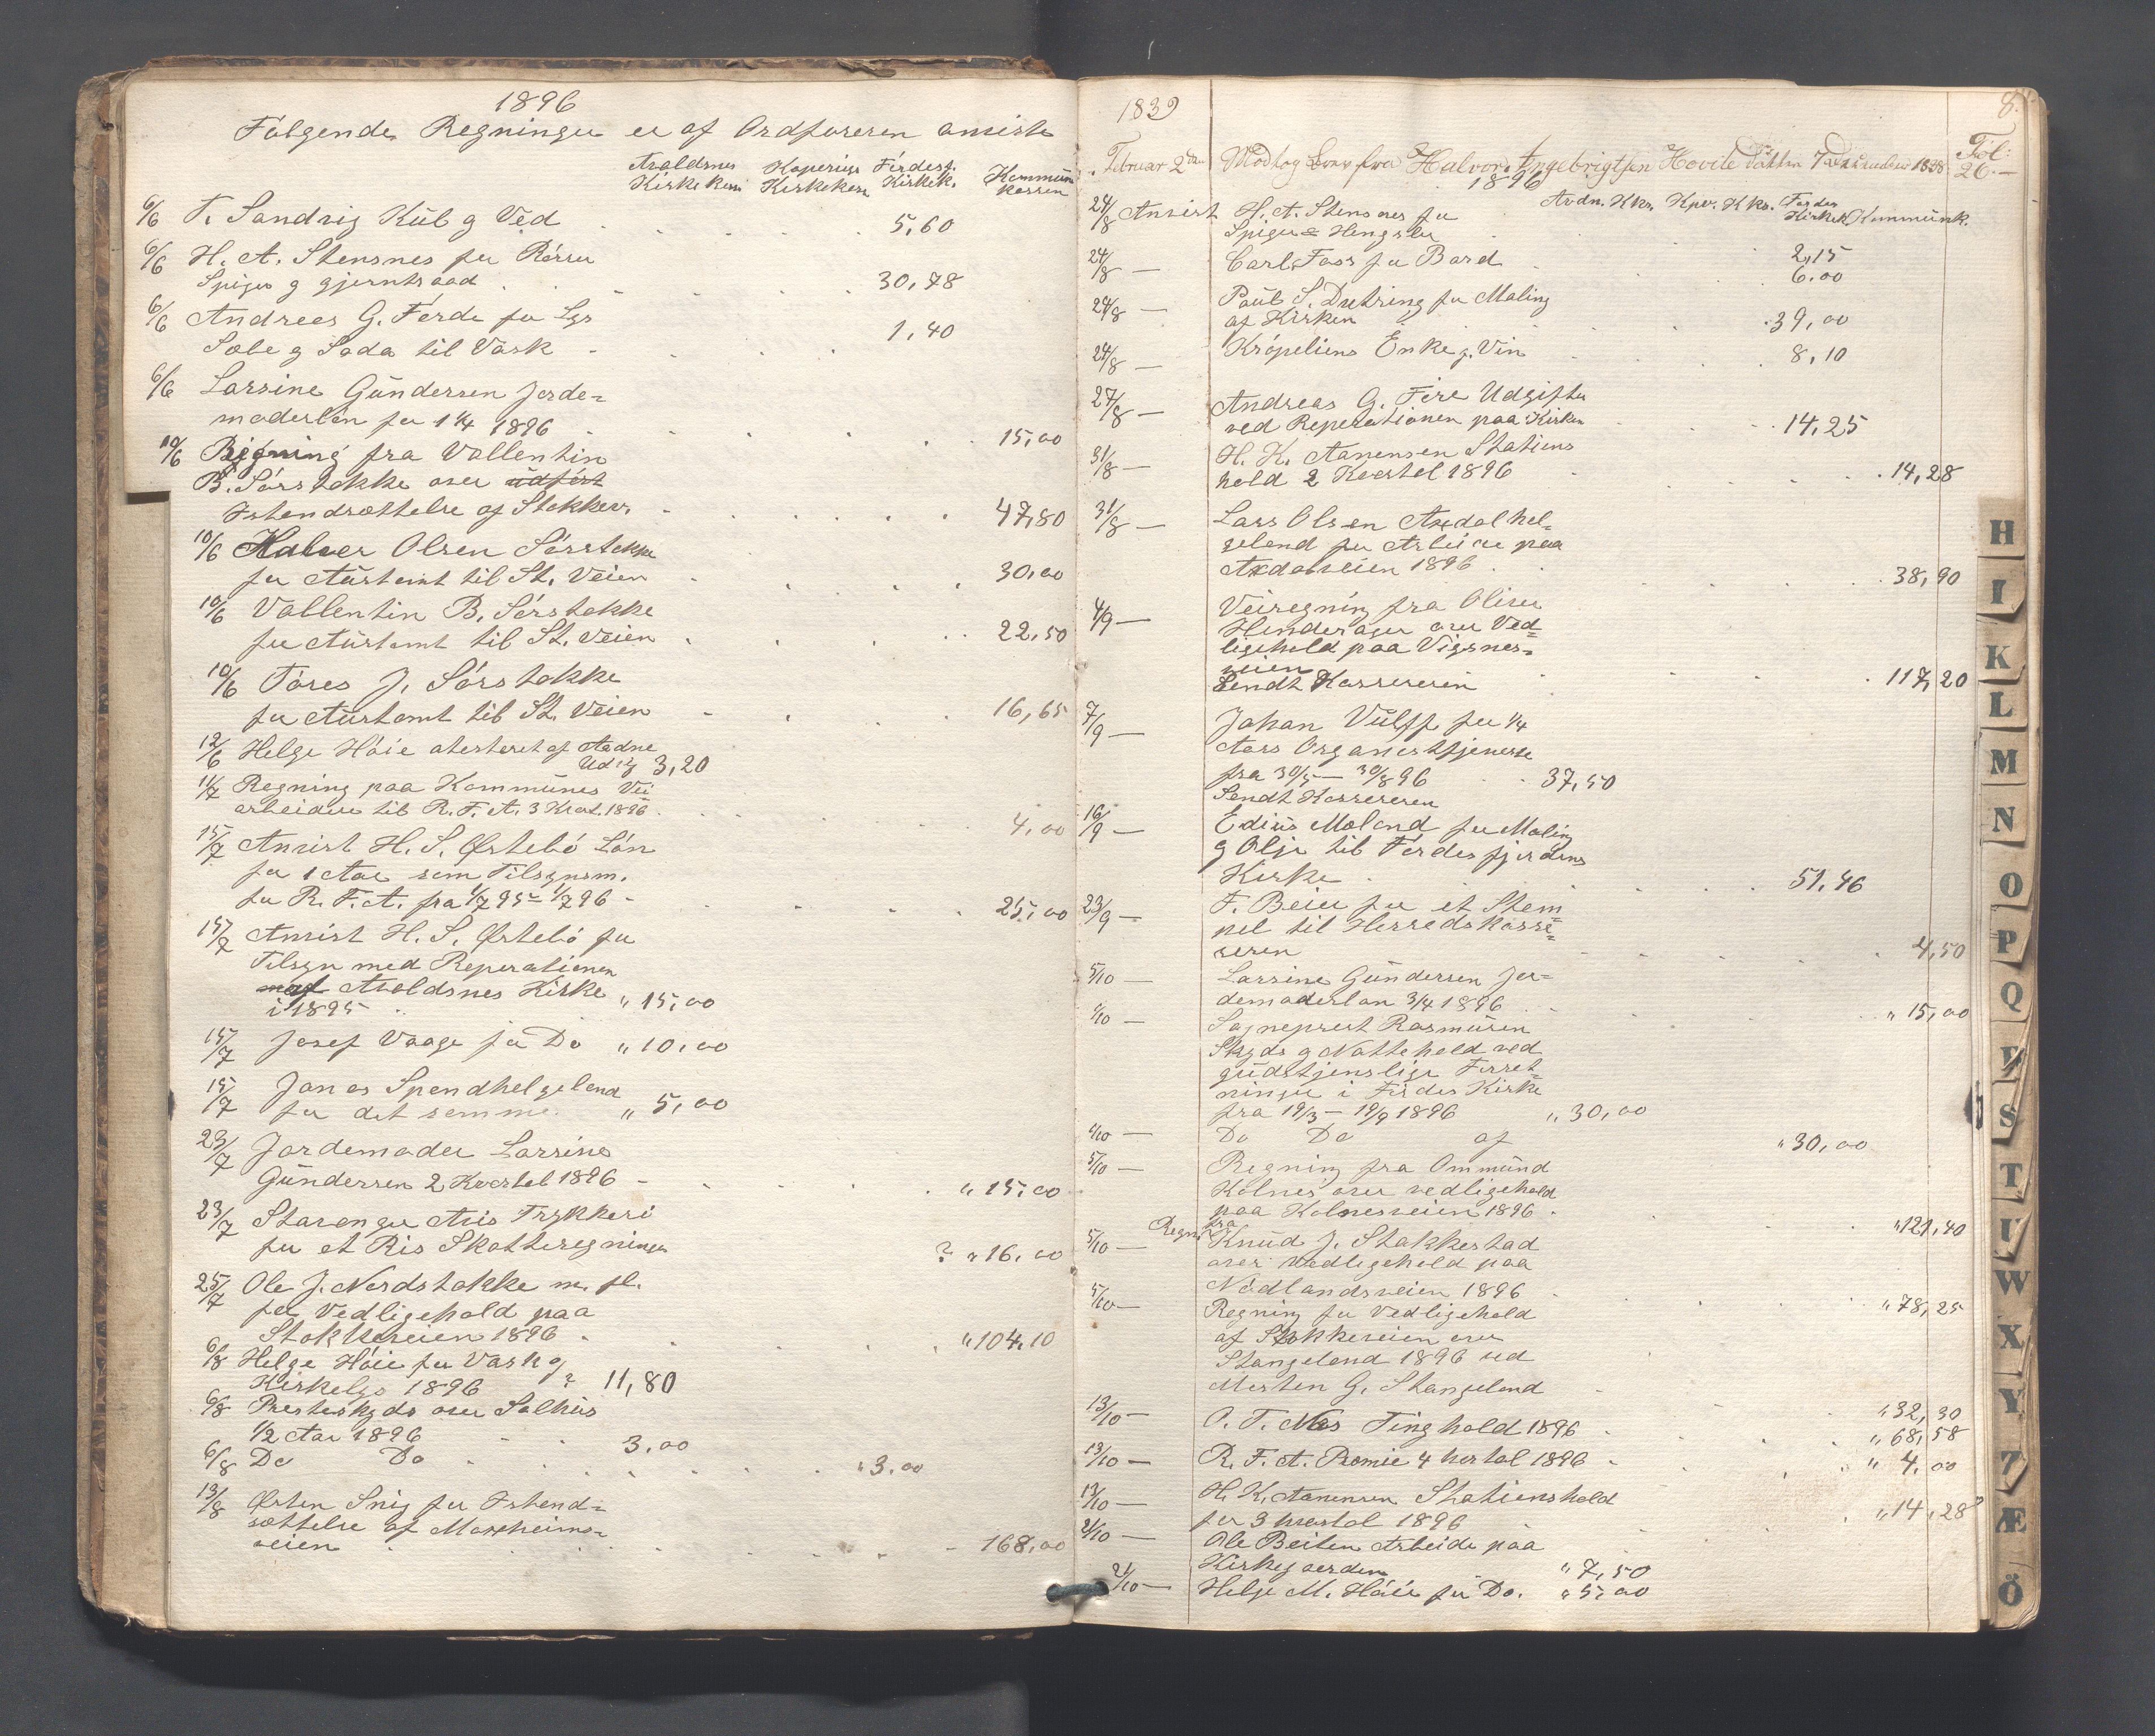 1896
Følgende Regninger er af Ordføreren anvist
Avaldsnes Kopervigs Førdesf. Kommune
Kirkekas. Kirkekas. Kirkek. kassen
6/6 T. Sandvig Kul g Ved 5,60
6/6 H. A. Stensnes for Rørsu
Spiger g gjerntraad 30,78
6/6 Andreas G. Førde for Lys
Sæbe g Soda til Vask 1,40
6/6 Larsine Gundersen Jorde=
moderløn for 1 1/4 1896 15,00
10/6 Regning fra Vallentin
B. Sørstokke over udført
Istandsættelse af Stokkev. 47,80
10/6 Halvor Olsen Sørstokke
for Aurtomt til St. Veien 30,00
10/6 Vallentin B. Sørstokke
for Aurtomt til St. Veien 22,50
10/6 Tores J. Sørstokke
for Aurtomt til St. Veien 16,65
12/6 Helge Høie atesteret af Aadne
Udvig 3,20
11/7 Regning paa Kommunes Vei
arbeidere til R. F. A. 3 Kvart. 1896 4,00
15/7 Anvist H. S. Østebø Løn
for 1 Aar som Tilsynsm.
for R. F. A. fra 1/7 95 - 1/7 96 - 25,00
15/7 Anvist H. S. Østebø for
Tilsyn med Reperationen
af Avaldsnes Kirke
i 1895 " 15,00
15/7 Josef Vaage for Do " 10,00
15/7 Jonas Spandhelgeland
for det samme " 5,00
23/7 Jordemoder Larsine
Gundersen 2 Kvartal 1896 - " 15,00
23/7 Stavanger Avis Trykkeri
for et Ris Skatteregninger ? " 16,00
25/7 Ole J. Nordstokke m. fl.
for Vedligehold paa
Stokkeveien 1896 " 104,10
6/8 Helge Høie for Vask g
Kirkelys 1896 ? 11,80
6/8 Presteskyds over Salhus
1/2 Aar 1896 3,00
6/8 Do Do " 3,00
13/8 Østen Snig for Istand=
sættelse af Moxheims=
veien 168,00
1839 8.
Februar 2den Modtog Brev fra Halvor Ingebrigtsen Hovile 7 December 1838 Fol: 26.
1896
Avdn. Kks. Kpv. Kks. Førdes Kirkek. Kommunk.
24/8 Anvist H. A. Stensnes for
Spiger & Hengsler 2,15
24/8 — Carl Foss for Bord 6.00
24/8 — Paul S. Duetring for Maling
af Kirken 39,00
24/8 — Krøpeliens Enke g. Vin 8,10
27/8 — Andreas G. Føre Udgifter
ved Reperationen paa Kirken 14,25
31/8 — H. K. Aanensen Stations
hold 2 Kvartal 1896 14,28
31/8 — Lars Olsen Axdalhel=
geland for Arbeide paa
Axdalveien 1896 38,90
4/9 — Veiregning fra Oliver
Hinderager over Ved=
ligehold paa Vigsnes=
veien
Sendt Kassereren 117,20
7/9 — Johan Vulff for 1/4
Aars Organisttjeneste
fra 30/5 — 30/8 96 37,50
Sendt Kassereren
16/9 — Edius Moland for Maling
g Olje til Førdesfjordens
Kirke 51,46
23/9 — F. Beier for et Stem
pel til Herredskasse=
reren 4,50
5/10 — Larsine Gundersen Jor=
demoderløn 3/4 1896 " 15,00
5/10 — Sogneprest Rasmusen
Skyds g Nattehold ved
gudstjenslige Forret=
ninger i Førdes Kirke
fra 19/3 — 19/9 1896 " 30,00
5/10 — Do Do af " 30,00
5/10 — Regning fra Ommund
Kolnes over vedligehold
paa Kolnesveien 1896 " 121,40
5/10 — Regn. fra Knud J. Stakkestad
over vedligehold paa
Nodlandsveien 1896 " 78,25
5/10 — Regning for Vedligehold
af Stokkeveien over
Stangeland 1896 ved
Morten G. Stangeland " 32,30
13/10 — O. T. Næs Tinghold 1896 " 68,58
13/10 — R. F. A. Premie 4 kvartal 1896 " 4,00
13/10 — H. K. Aanensen Stationshold
for 3 kvartal 1896 " 14,28
21/10 — Ole Beiten Arbeide paa
Kirkegaarden " 7,50
21/10 — Helge M. Høie for Do. " 5,00
H
I
K
L
M
N
O
P
Q
R
S
T
U
W
X
Y
Z
Æ
Ö